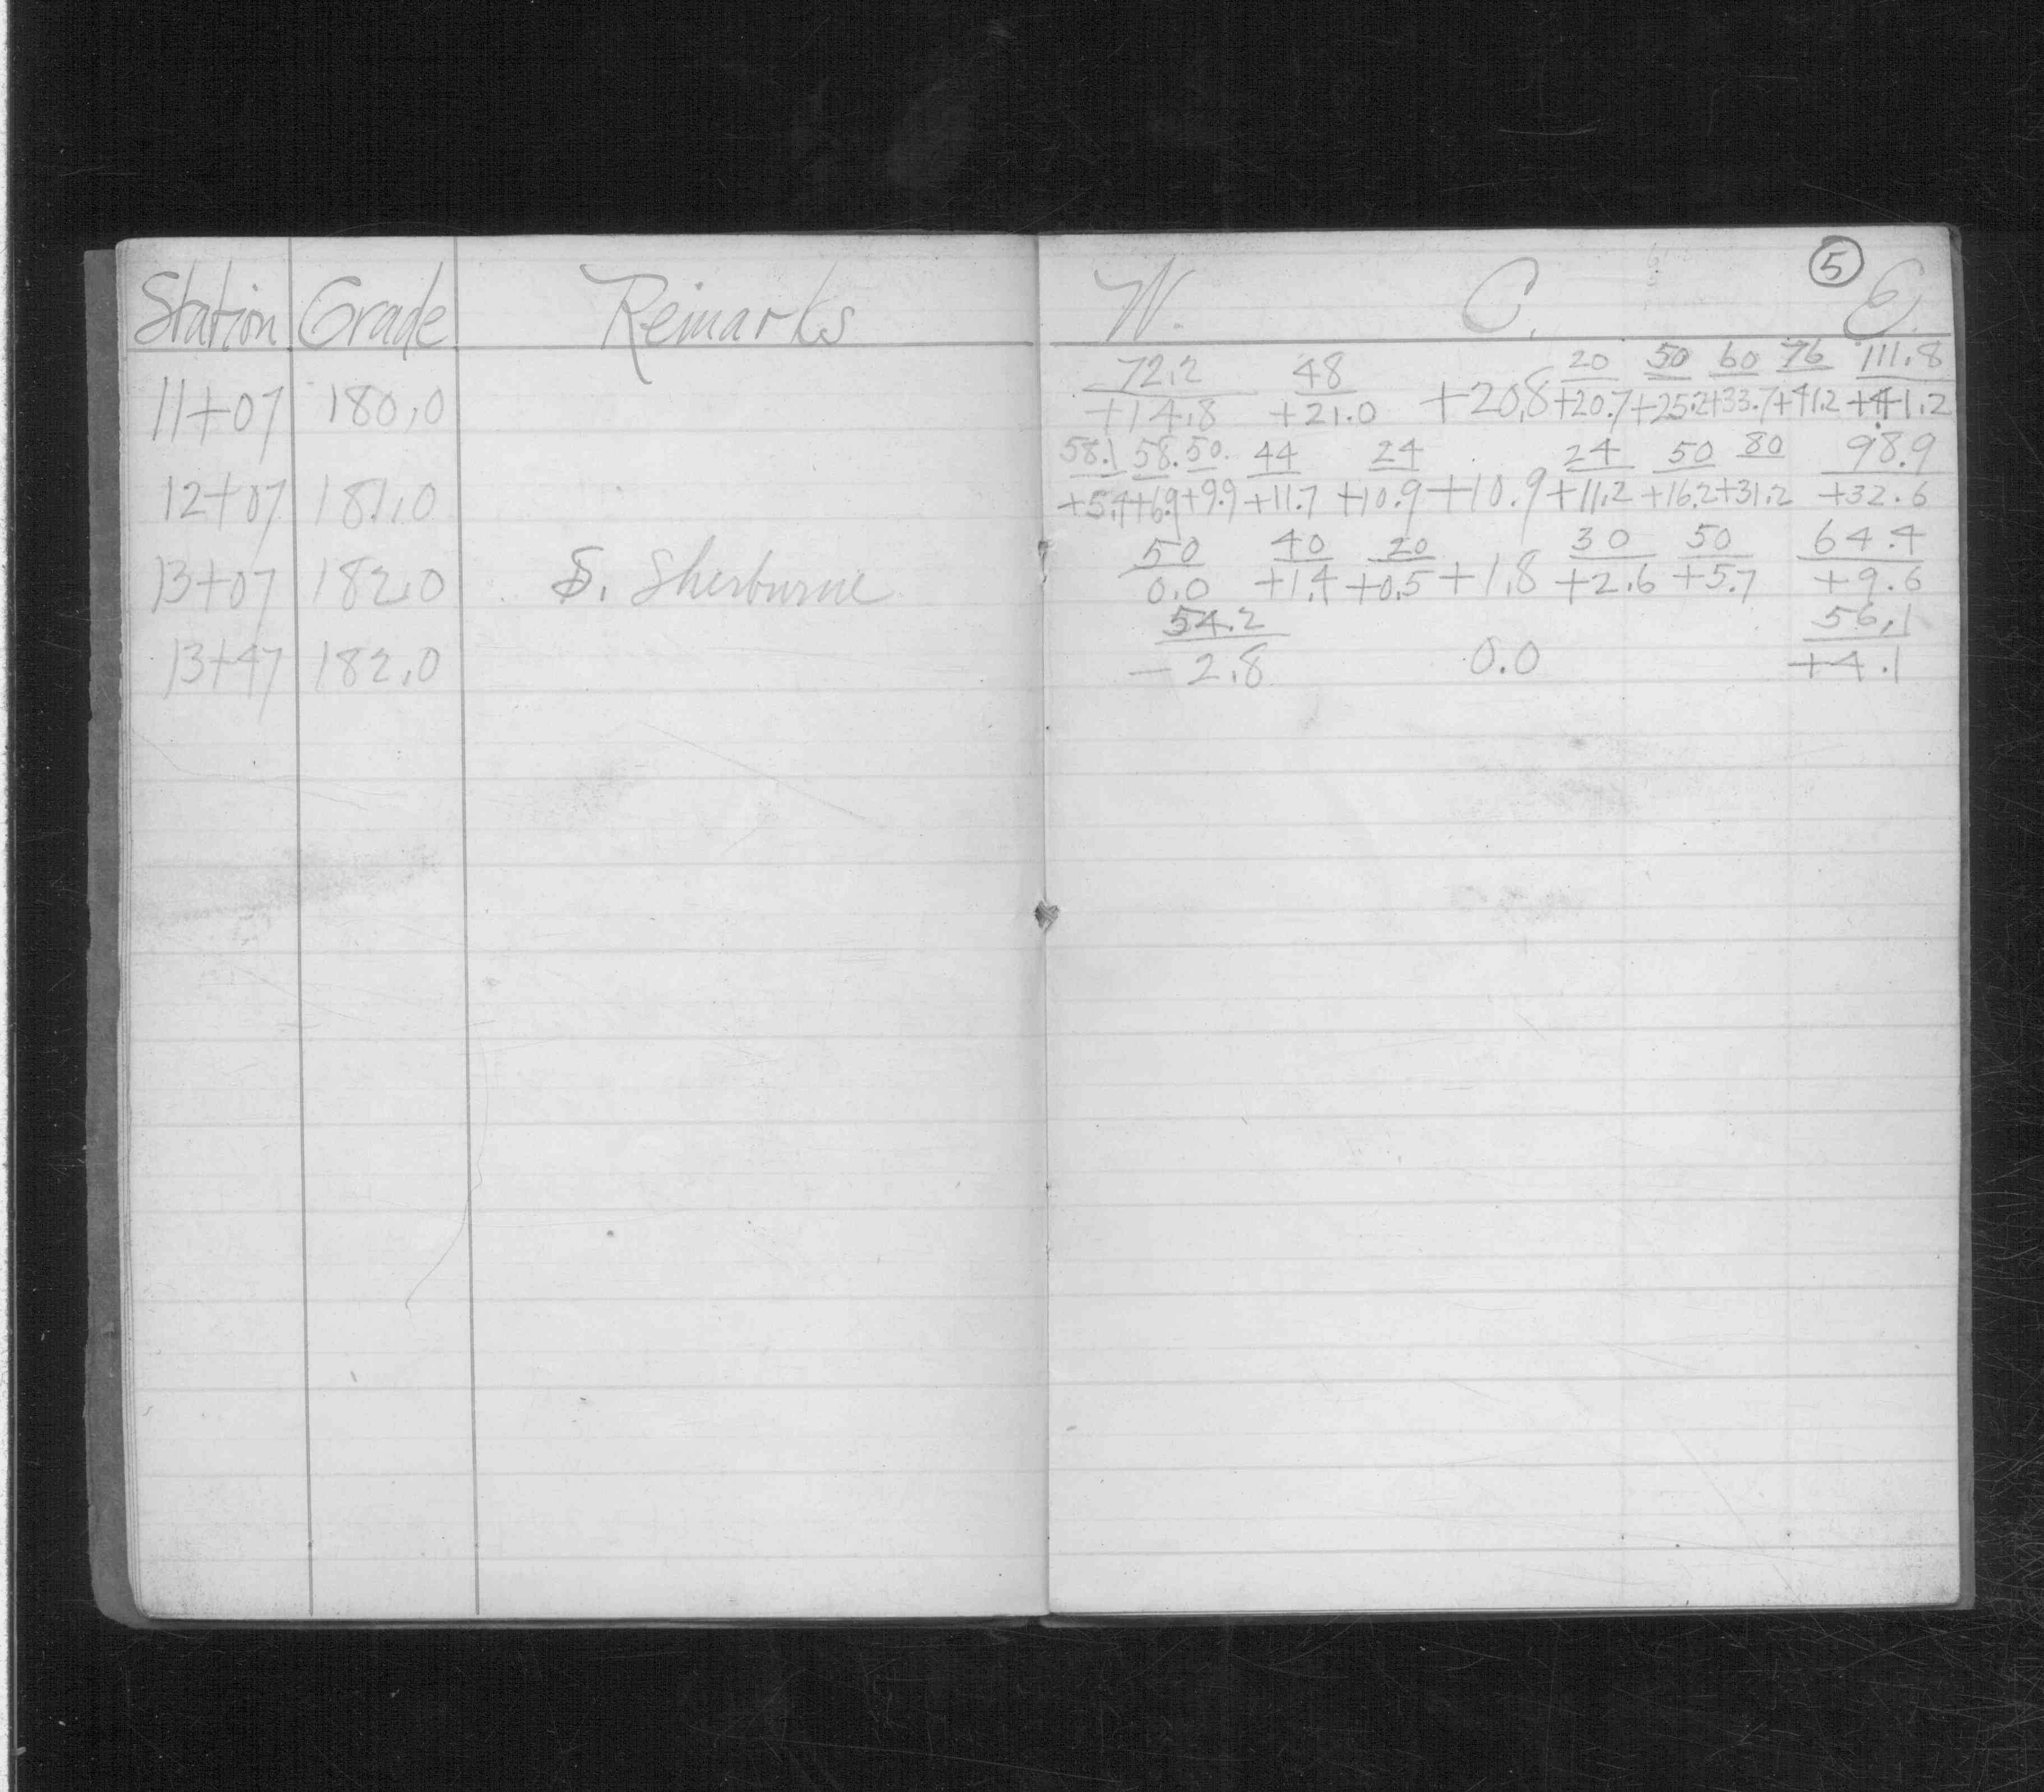 Station Grade Remarks W. C. E. 5
72.2 48 20 50 60 76 111.8
11+07 180.0 +14.8 +21.0 +20.8 +20.7 +25.2 +33.7 +41.2 +41.2
58.1 58. 50. 44 24 24 50 80 98.9
12+07 181.0 +5.4 +6.9 +9.9 +11.7 +10.9 +10.9 +11.2 +16.2 +31.2 +32.6
50 40 20 30 50 64.4
13+07 182.0 S. Sherburne 0.0 +1.4 +0.5 +1.8 +2.6 +5.7 +9.6
54.2 56.1
13+47 182.0 -2.8 0.0 +4.1